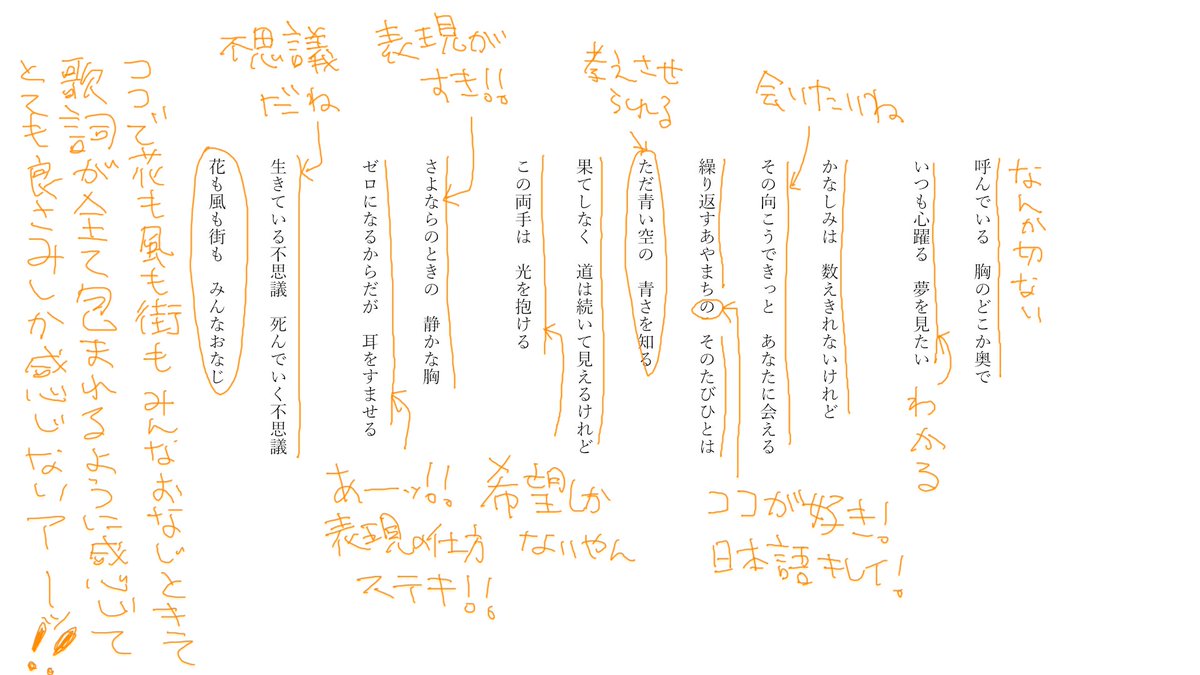 なんか切ない
呼んでいる　胸のどこか奥で
いつも心躍る　夢を見たい
わかる
かなしみは　数えきれないけれど
会いたいね
その向こうできっと　あなたに会える
繰り返すあやまちの　そのたびひとは
ココが好き!
日本語キレイ!
考えさせ
られる
ただ青い空の　青さを知る
果てしなく　道は続いて見えるけれど
この両手は　光を抱ける
希望しか
ないやん
表現が
すき!!
さよならのときの　静かな胸
ゼロになるからだが　耳をすませる
あーッ!!
表現の仕方
ステキ!!
不思議
だね
生きている不思議　死んでいく不思議
花も風も街も　みんなおなじ
ココで花も風も街もみんなおなじときて
歌詞が全て包まれるように感じて
とても良さみしか感じないアーッ!!